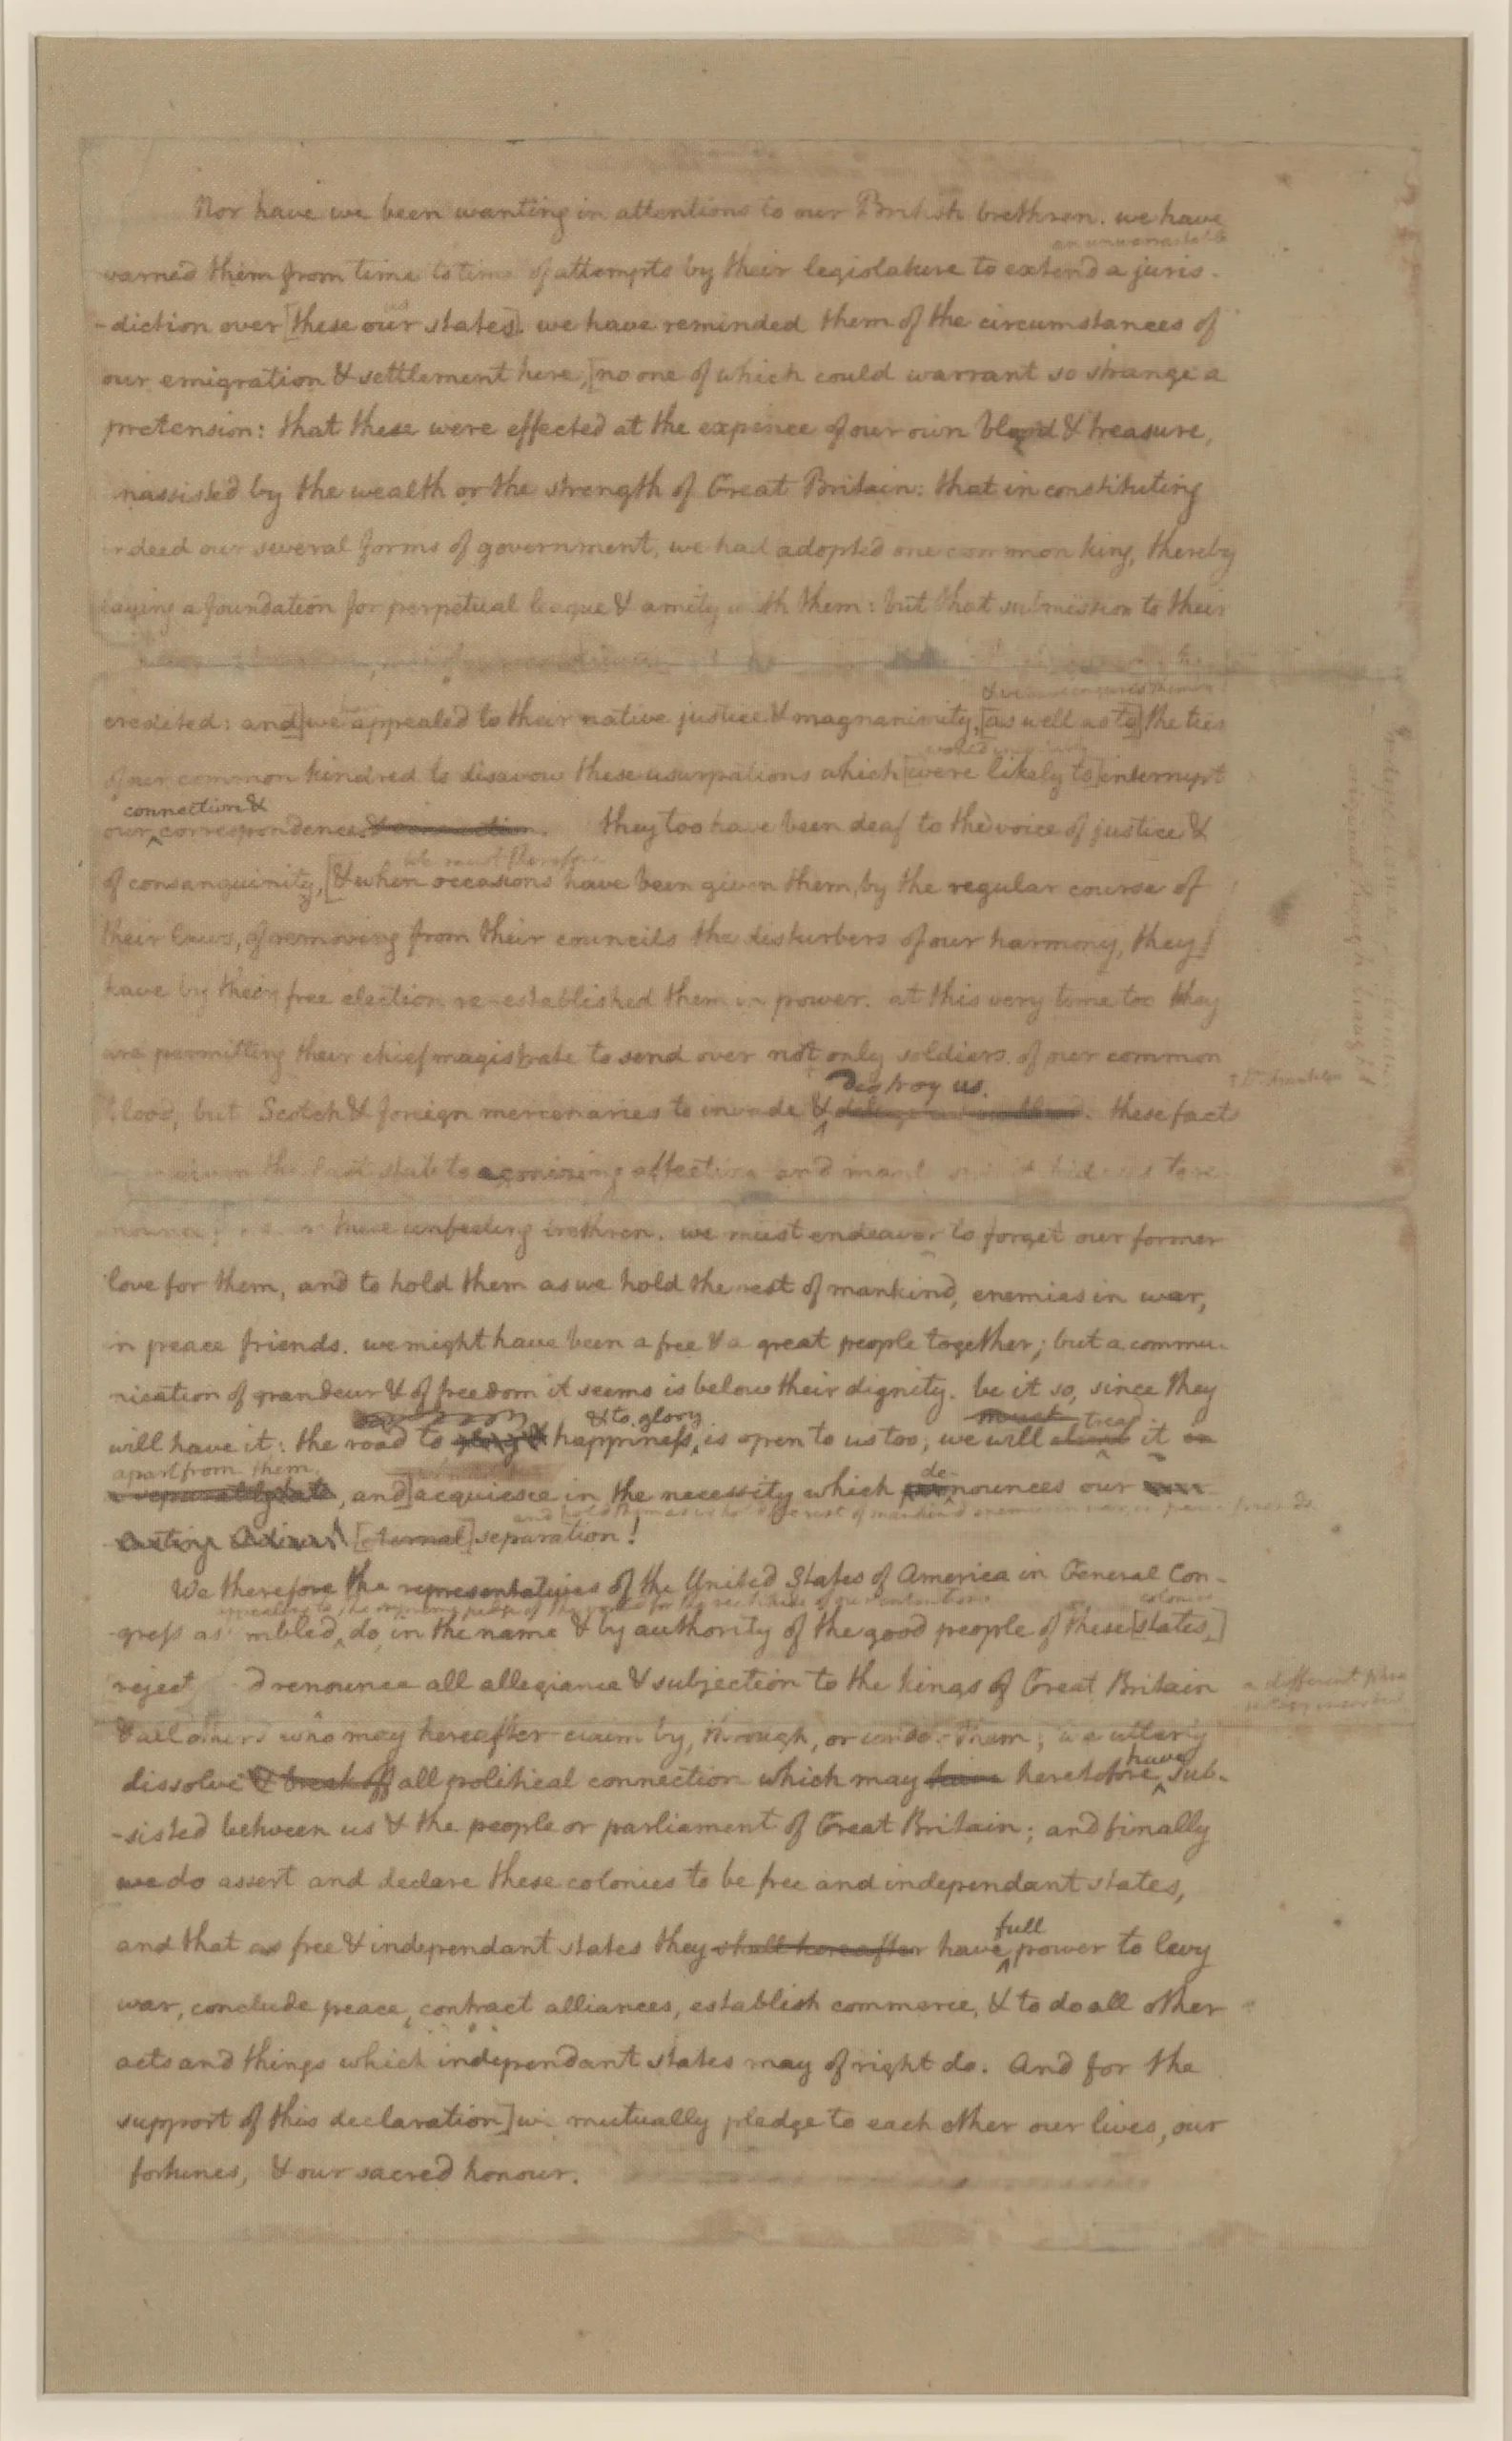 Nor have we been wanting in attentions to our British brethren. we have
an unwarrantable
warned them from time to time of attempts by their legislature to extend a juris-
us
-diction over [these our states]. we have reminded them of the circumstances of
our emigration & settlement here, [no one of which could warrant so strange a
pretension: that these were effected at the expence of our own blood & treasure,
unassisted by the wealth or the strength of Great Britain: that in constituting
indeed our several forms of government, we had adopted one common king, thereby
laying a foundation for perpetual league & amity with them: but that submission to their
& we have conjured them by
have
credited: and] we appealed to their native justice & magnanimity, [as well as to] the ties
would inevitably
of our common kindred to disavow these usurpations which [were likely to] interrupt
connection &
our correspondence & connection. they too have been deaf to the voice of justice &
we must therefore
of consanguinity, [& when occasions have been given them, by the regular course of
their laws, of removing from their councils the disturbers of our harmony, they
have by their free election re-established them in power. at this very time too they
are permitting their chief magistrate to send over not only soldiers of our common
destroy us.
† Dr. Franklin
blood, but Scotch & foreign mercenaries to invade & these facts
given the last stab to agonizing affection and manly to re-
nounce these unfeeling brethren. we must endeavor to forget our former
love for them, and to hold them as we hold the rest of mankind, enemies in war,
in peace friends. we might have been a free & a great people together; but a commu-
nication of grandeur & of freedom it seems is below their dignity. be it so, since they
& to glory must tread
will have it: the road to glory & happiness, is open to us too; we will climb it in
apart from them
a separately state, and] acquiesce in the necessity which pronounces our ever-
de-
and hold them as we hold the rest of mankind enemies in war, in peace friends.
lasting Adieu! [eternal] separation!
We therefore the representatives of the United States of America in General Con-
appealing to the supreme judge of the world for the rectitude of our intentions
colonies
-gress assembled, do, in the name & by authority of the good people of these [states,]
reject and renounce all allegiance & subjection to the kings of Great Britain
a different phra
seology inserted
& all others who may hereafter claim by, through, or under them; we utterly
have
dissolve & break off all political connection which may have heretofore sub-
-sisted between us & the people or parliament of Great Britain; and finally
we do assert and declare these colonies to be free and independant states,
full
and that as free & independant states they shall hereafter have power to levy
war, conclude peace, contract alliances, establish commerce, & to do all other
acts and things which independant states may of right do. And for the
support of this declaration] we mutually pledge to each other our lives, our
fortunes, & our sacred honour.